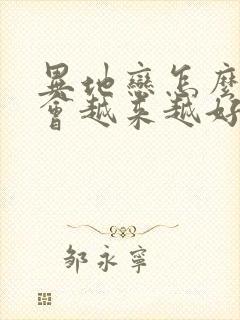 異地戀怎麼
會越來越好
鄒永寧